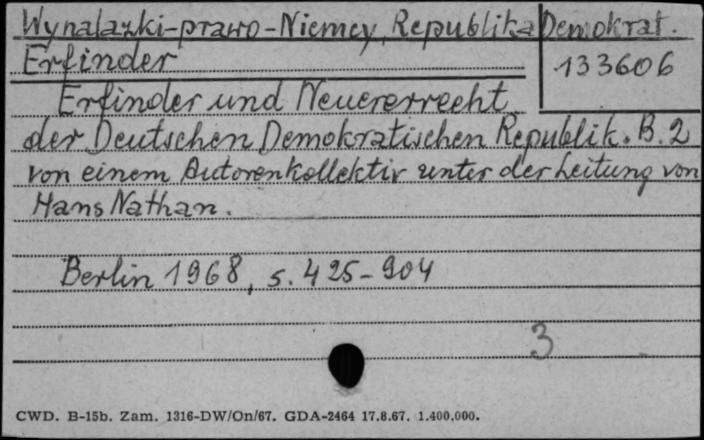 Wynalazki-prawo-Niemcy, Republika Demokrat.
Erfinder
133606
Erfinder und Neuererrecht
der Deutschen Demokratischen Republik. B. 2
von einem Autorenkollektiv unter der Leitung von
Hans Nathan.
Berlin 1968, s. 425-904
3
CWD. B-15b. Zam. 1316-DW/On/67. GDA-2464 17.8.67. 1.400.000.